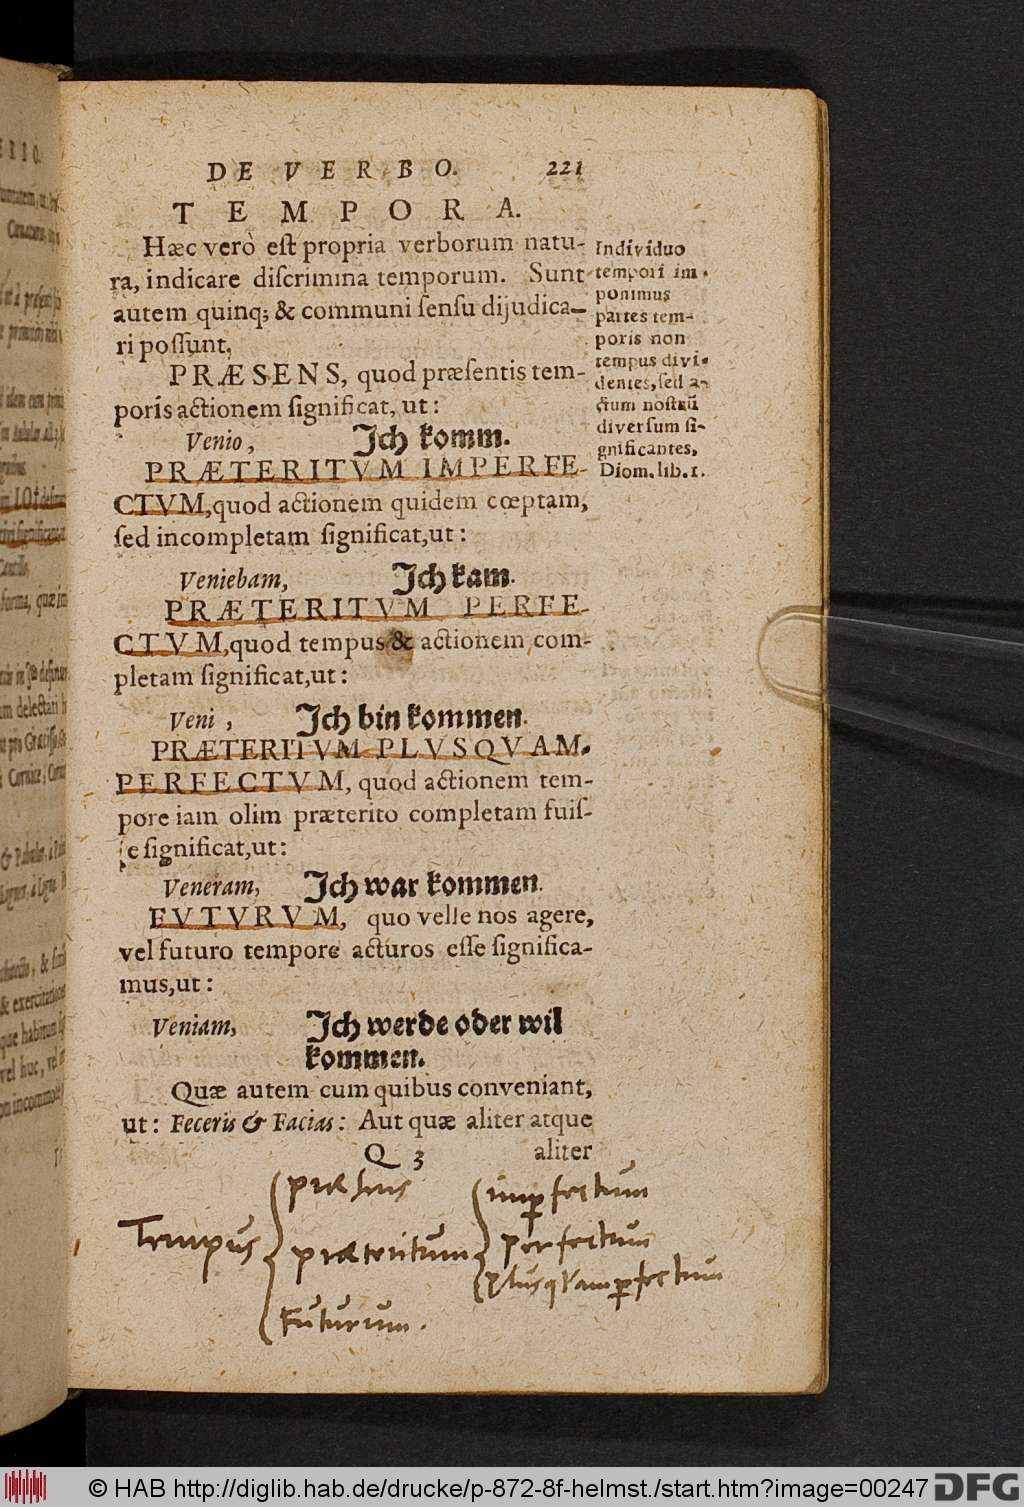 DE VERBO. 221
TEMPORA.
Hæc verò eſt propria verborum natu-
ra, indicare diſcrimina temporum. Sunt
autem quinq; & communi ſenſu dijudica-
ri poſſunt.
PRÆSENS, quod præſentis tem-
poris actionem ſignificat, ut:
Venio, Ich komm.
PRÆTERITVM IMPERFE-
CTVM, quod actionem quidem cœptam,
ſed incompletam ſignificat, ut:
Veniebam, Ich kam.
PRÆTERITVM PERFE-
CTVM, quod tempus & actionem com-
pletam ſignificat, ut:
Veni, Ich bin kommen.
PRÆTERITVM PLVSQVAM-
PERFECTVM, quod actionem tem-
pore iam olim præterito completam fuiſ-
ſe ſignificat, ut:
Veneram, Ich war kommen.
FVTVRVM, quo velle nos agere,
vel futuro tempore acturos eſſe ſignifica-
mus, ut:
Veniam, Ich werde oder wil
kommen.
Quæ autem cum quibus conveniant,
ut: Feceris & Facias: Aut quæ aliter atque
Q 3 aliter
Individuo
tempori im-
ponimus
partes tem-
poris non
tempus divi-
dentes, ſed a-
ctum noſtrũ
diverſum ſi-
gnificantes,
Diom. lib. 1.
præsens imperfectum
Tempus præteritum perfectum
plusqvamperfectum
Futurum.
© HAB http://diglib.hab.de/drucke/p-872-8f-helmst./start.htm?image=00247 DFG